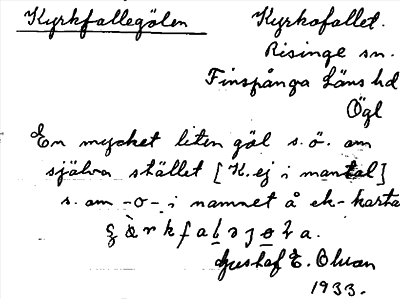 Kyrkfallegölen
Kyrkofallet.
Risinge sn.
Finspånga Läns hd
Ögl
En mycket liten göl s.ö. om
själva stället [K. ej i mantal]
s. om -o- i namnet å ek-karta
Gustaf E.
1933.